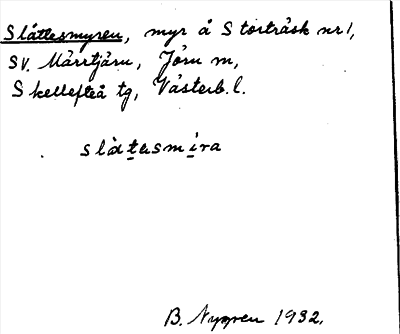 Slåttesmyren, myr å Storträsk nr 1,
SV. Mårrtjärn, Jörn m,
Skellefteå tg, Västerb. l.
slåtasmira
B. Nygren 1932.